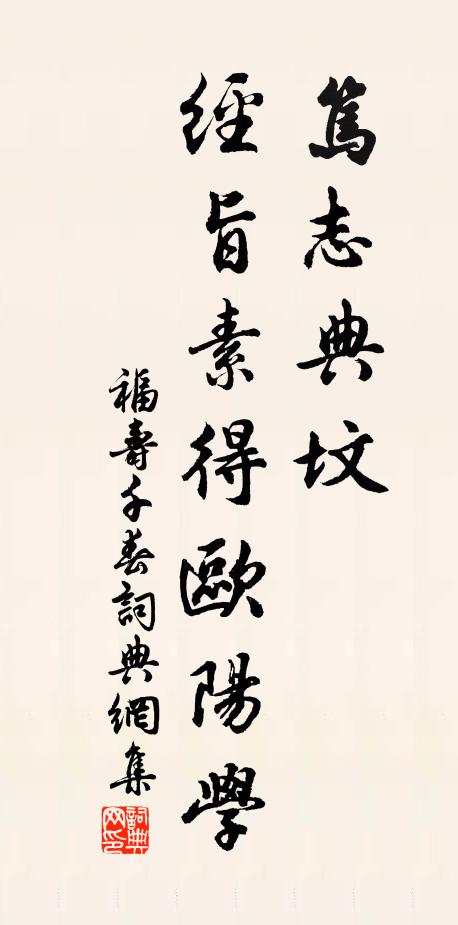 篤志典墳
經旨素得歐陽學
福壽千春詞典網集
詞典网印